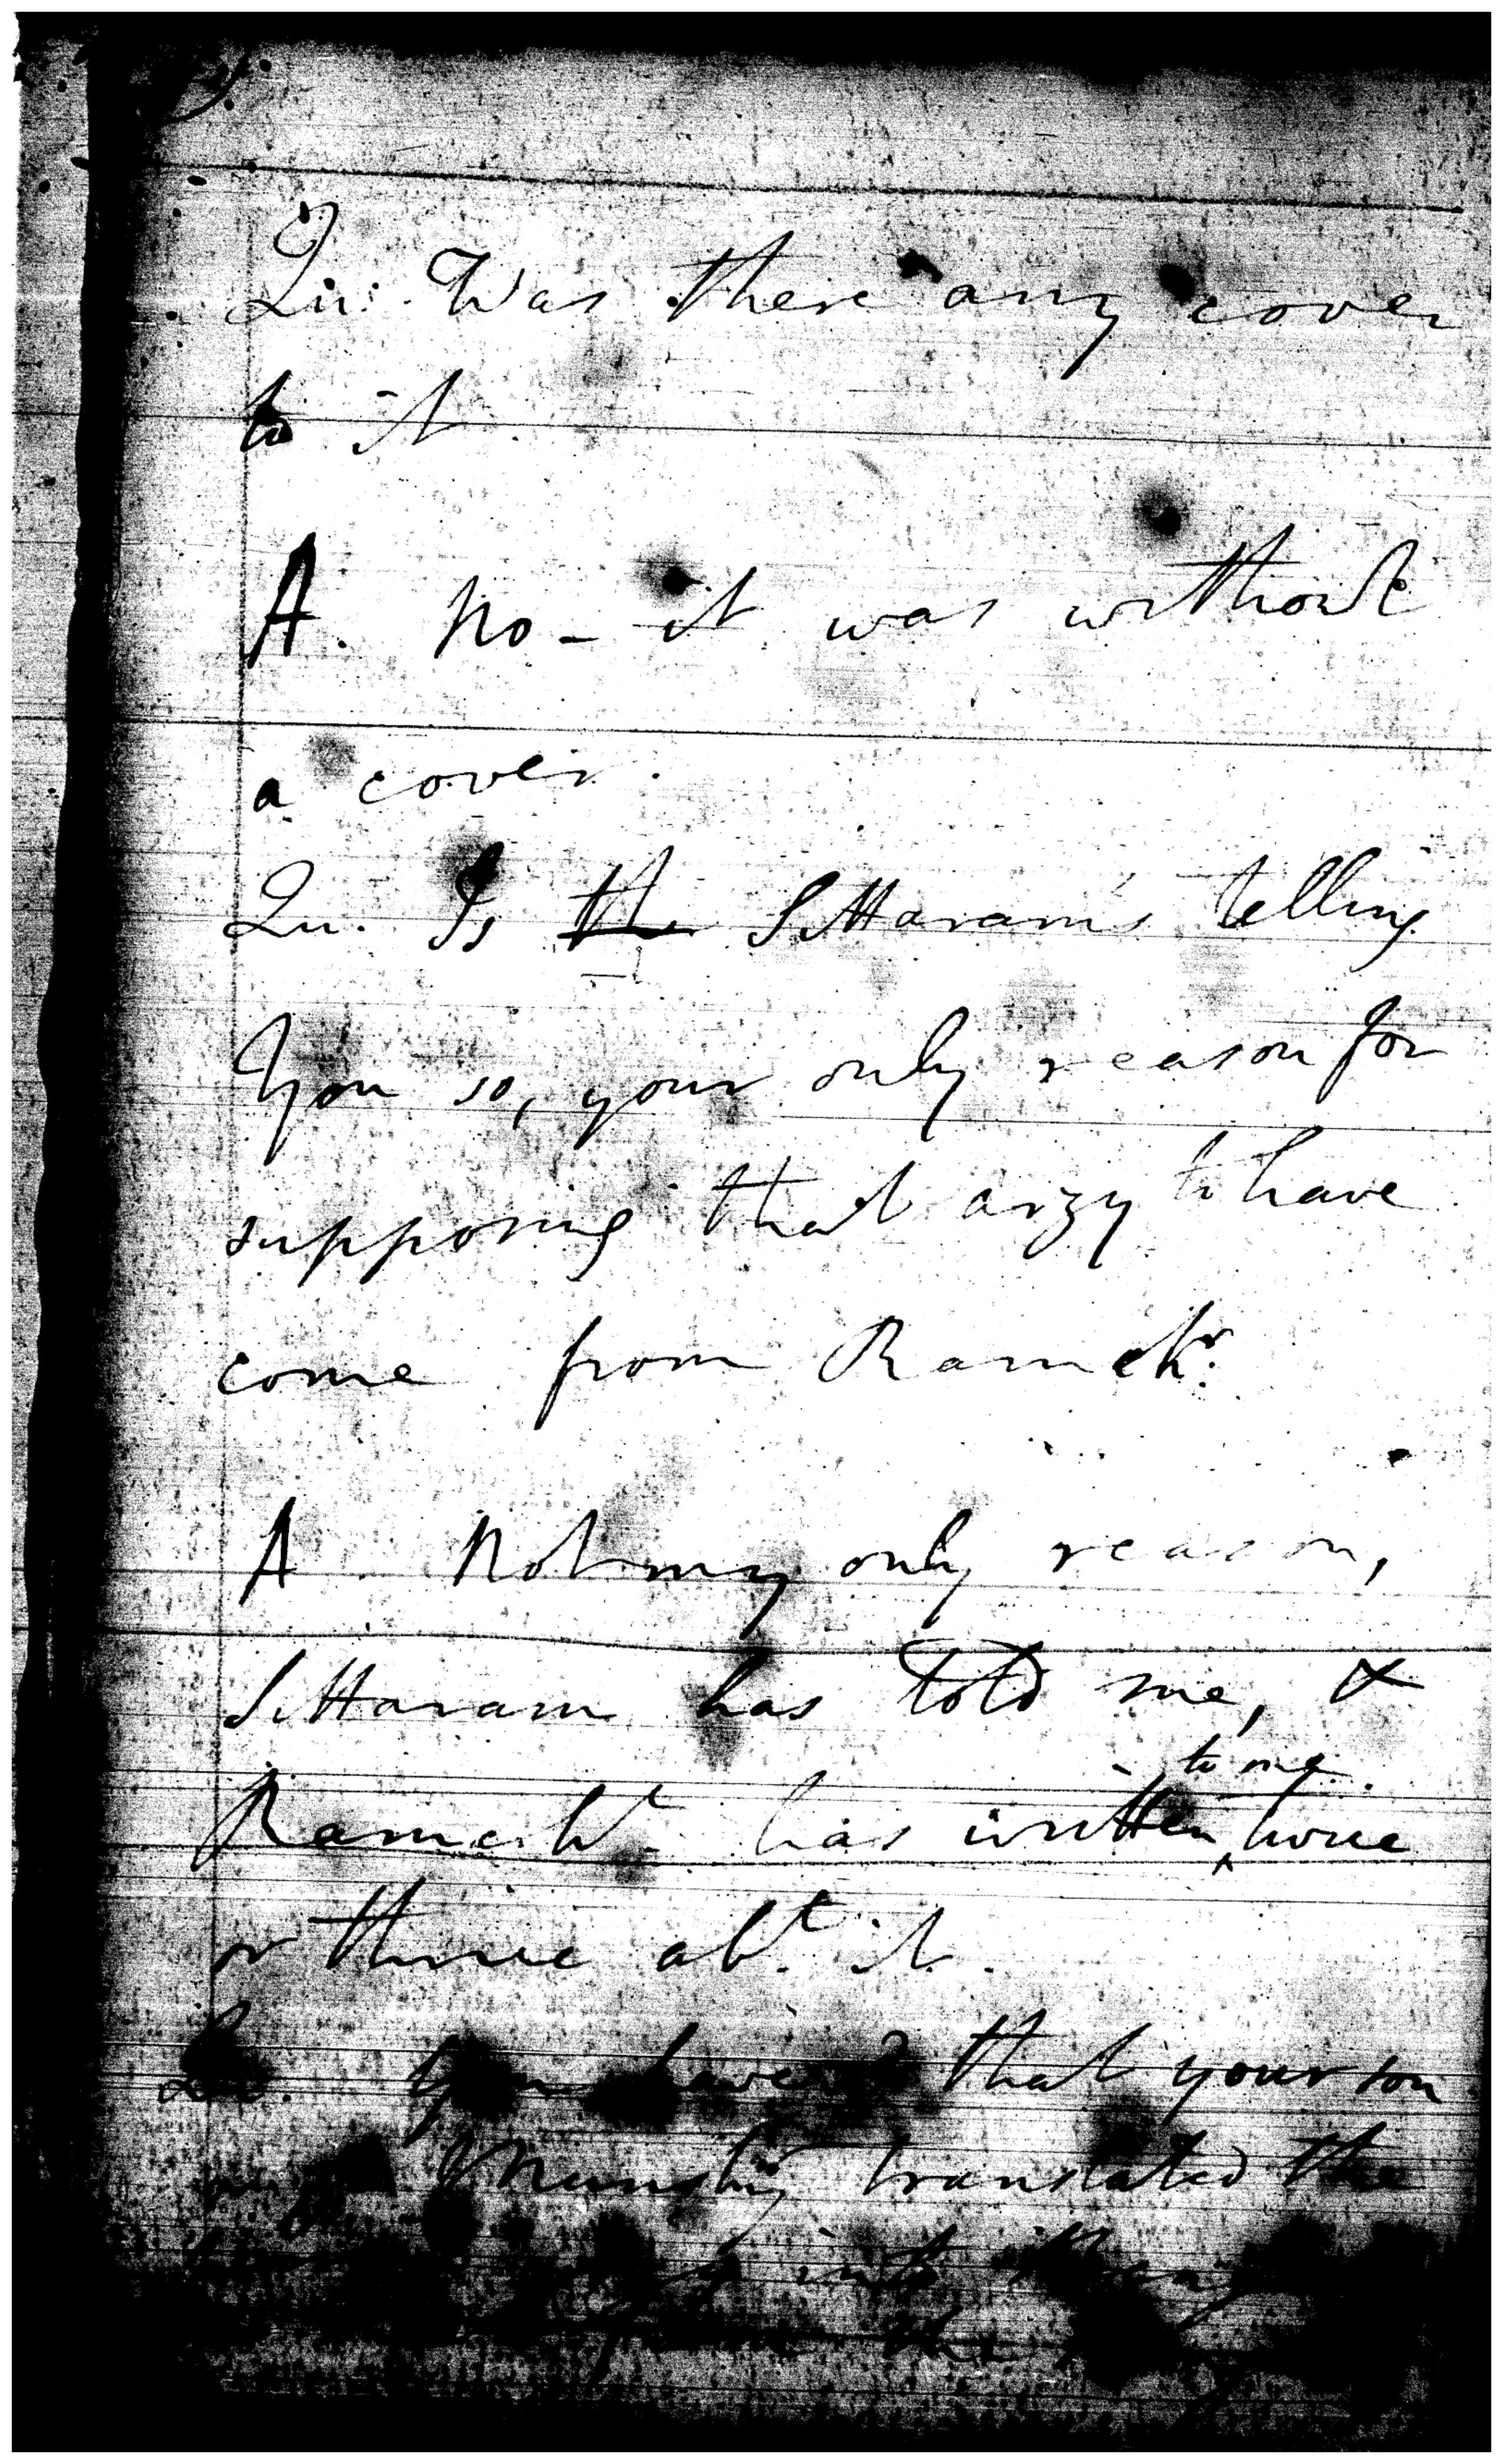 Qu. Was there any cover
to it
A. No - it was without
a cover.
Qu. Is the Sittaram's telling
You so, your only reason for
supposing that arzy to have
come from Ramchr.
A Not my only reason,
Sittaram has told me, &
to me
Ramchr has written twice
or thrice abt. it.
Qu. You have that your son
Munshy translated the
into
the